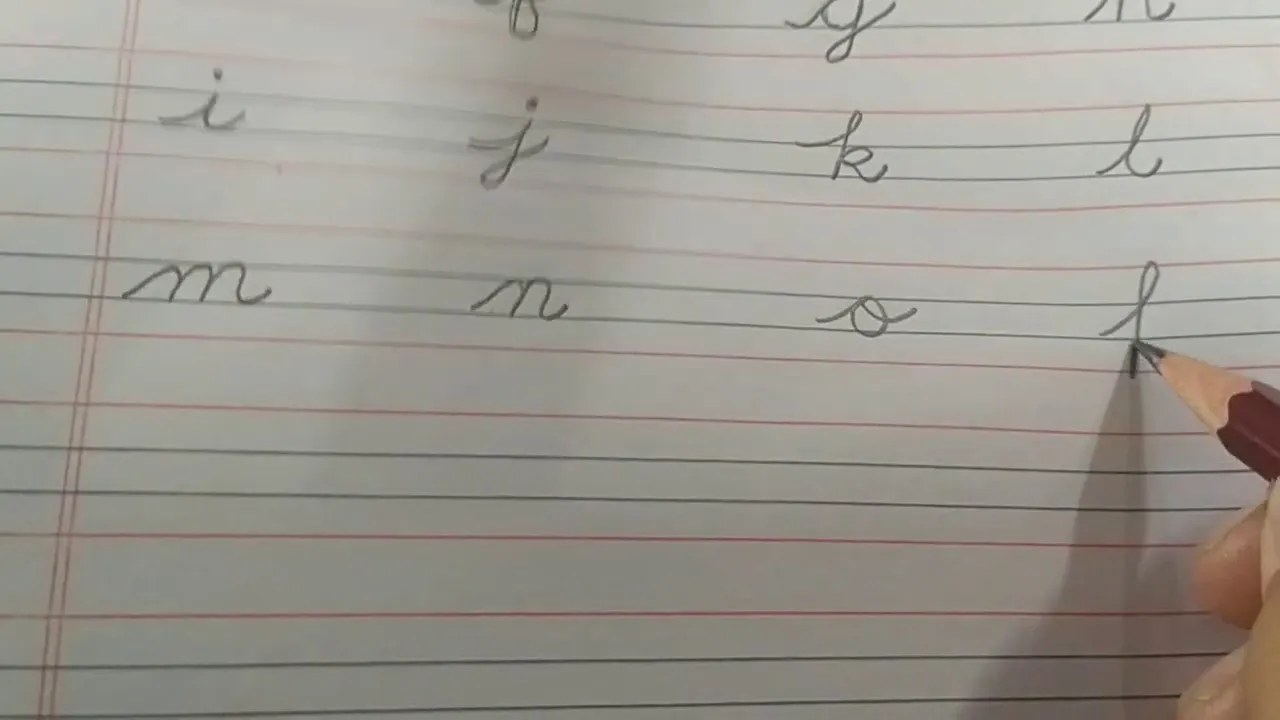 f g h
i j k l
m n o